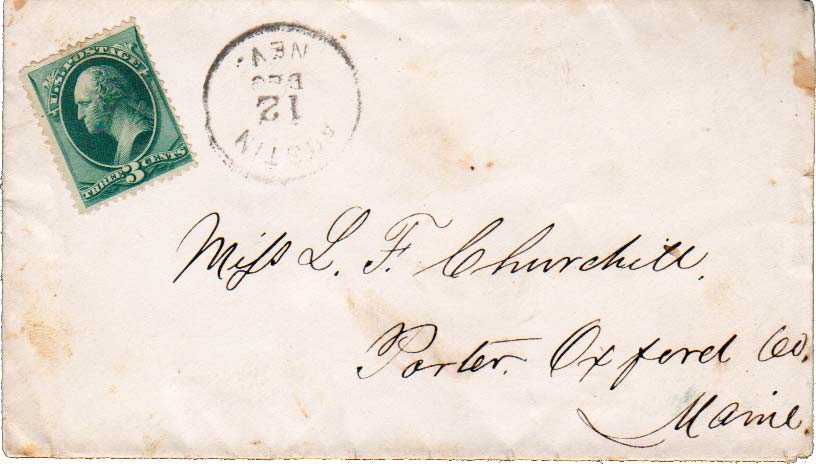 U.S. POSTAGE
THREE 3 CENTS
AUSTIN
12
DEC
NEV.
Miss L. F. Churchill.
Porter. Oxford Co.
Maine.